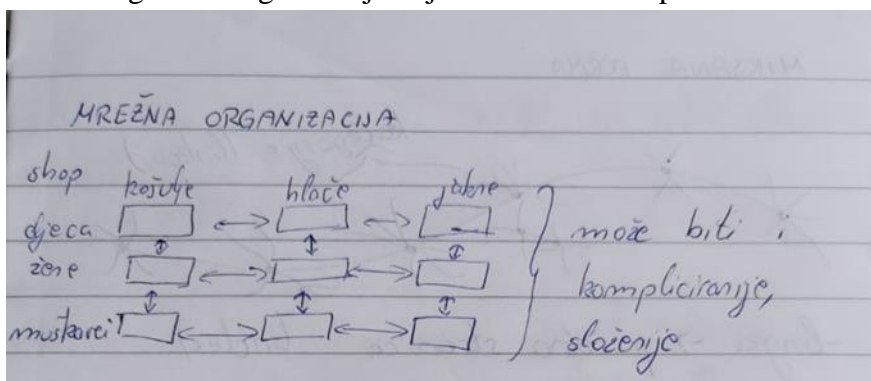 MREŽNA ORGANIZACIJA
shop košulje hlače jakne
djeca
žene
muskarci
može biti i
kompliciranije,
složenije